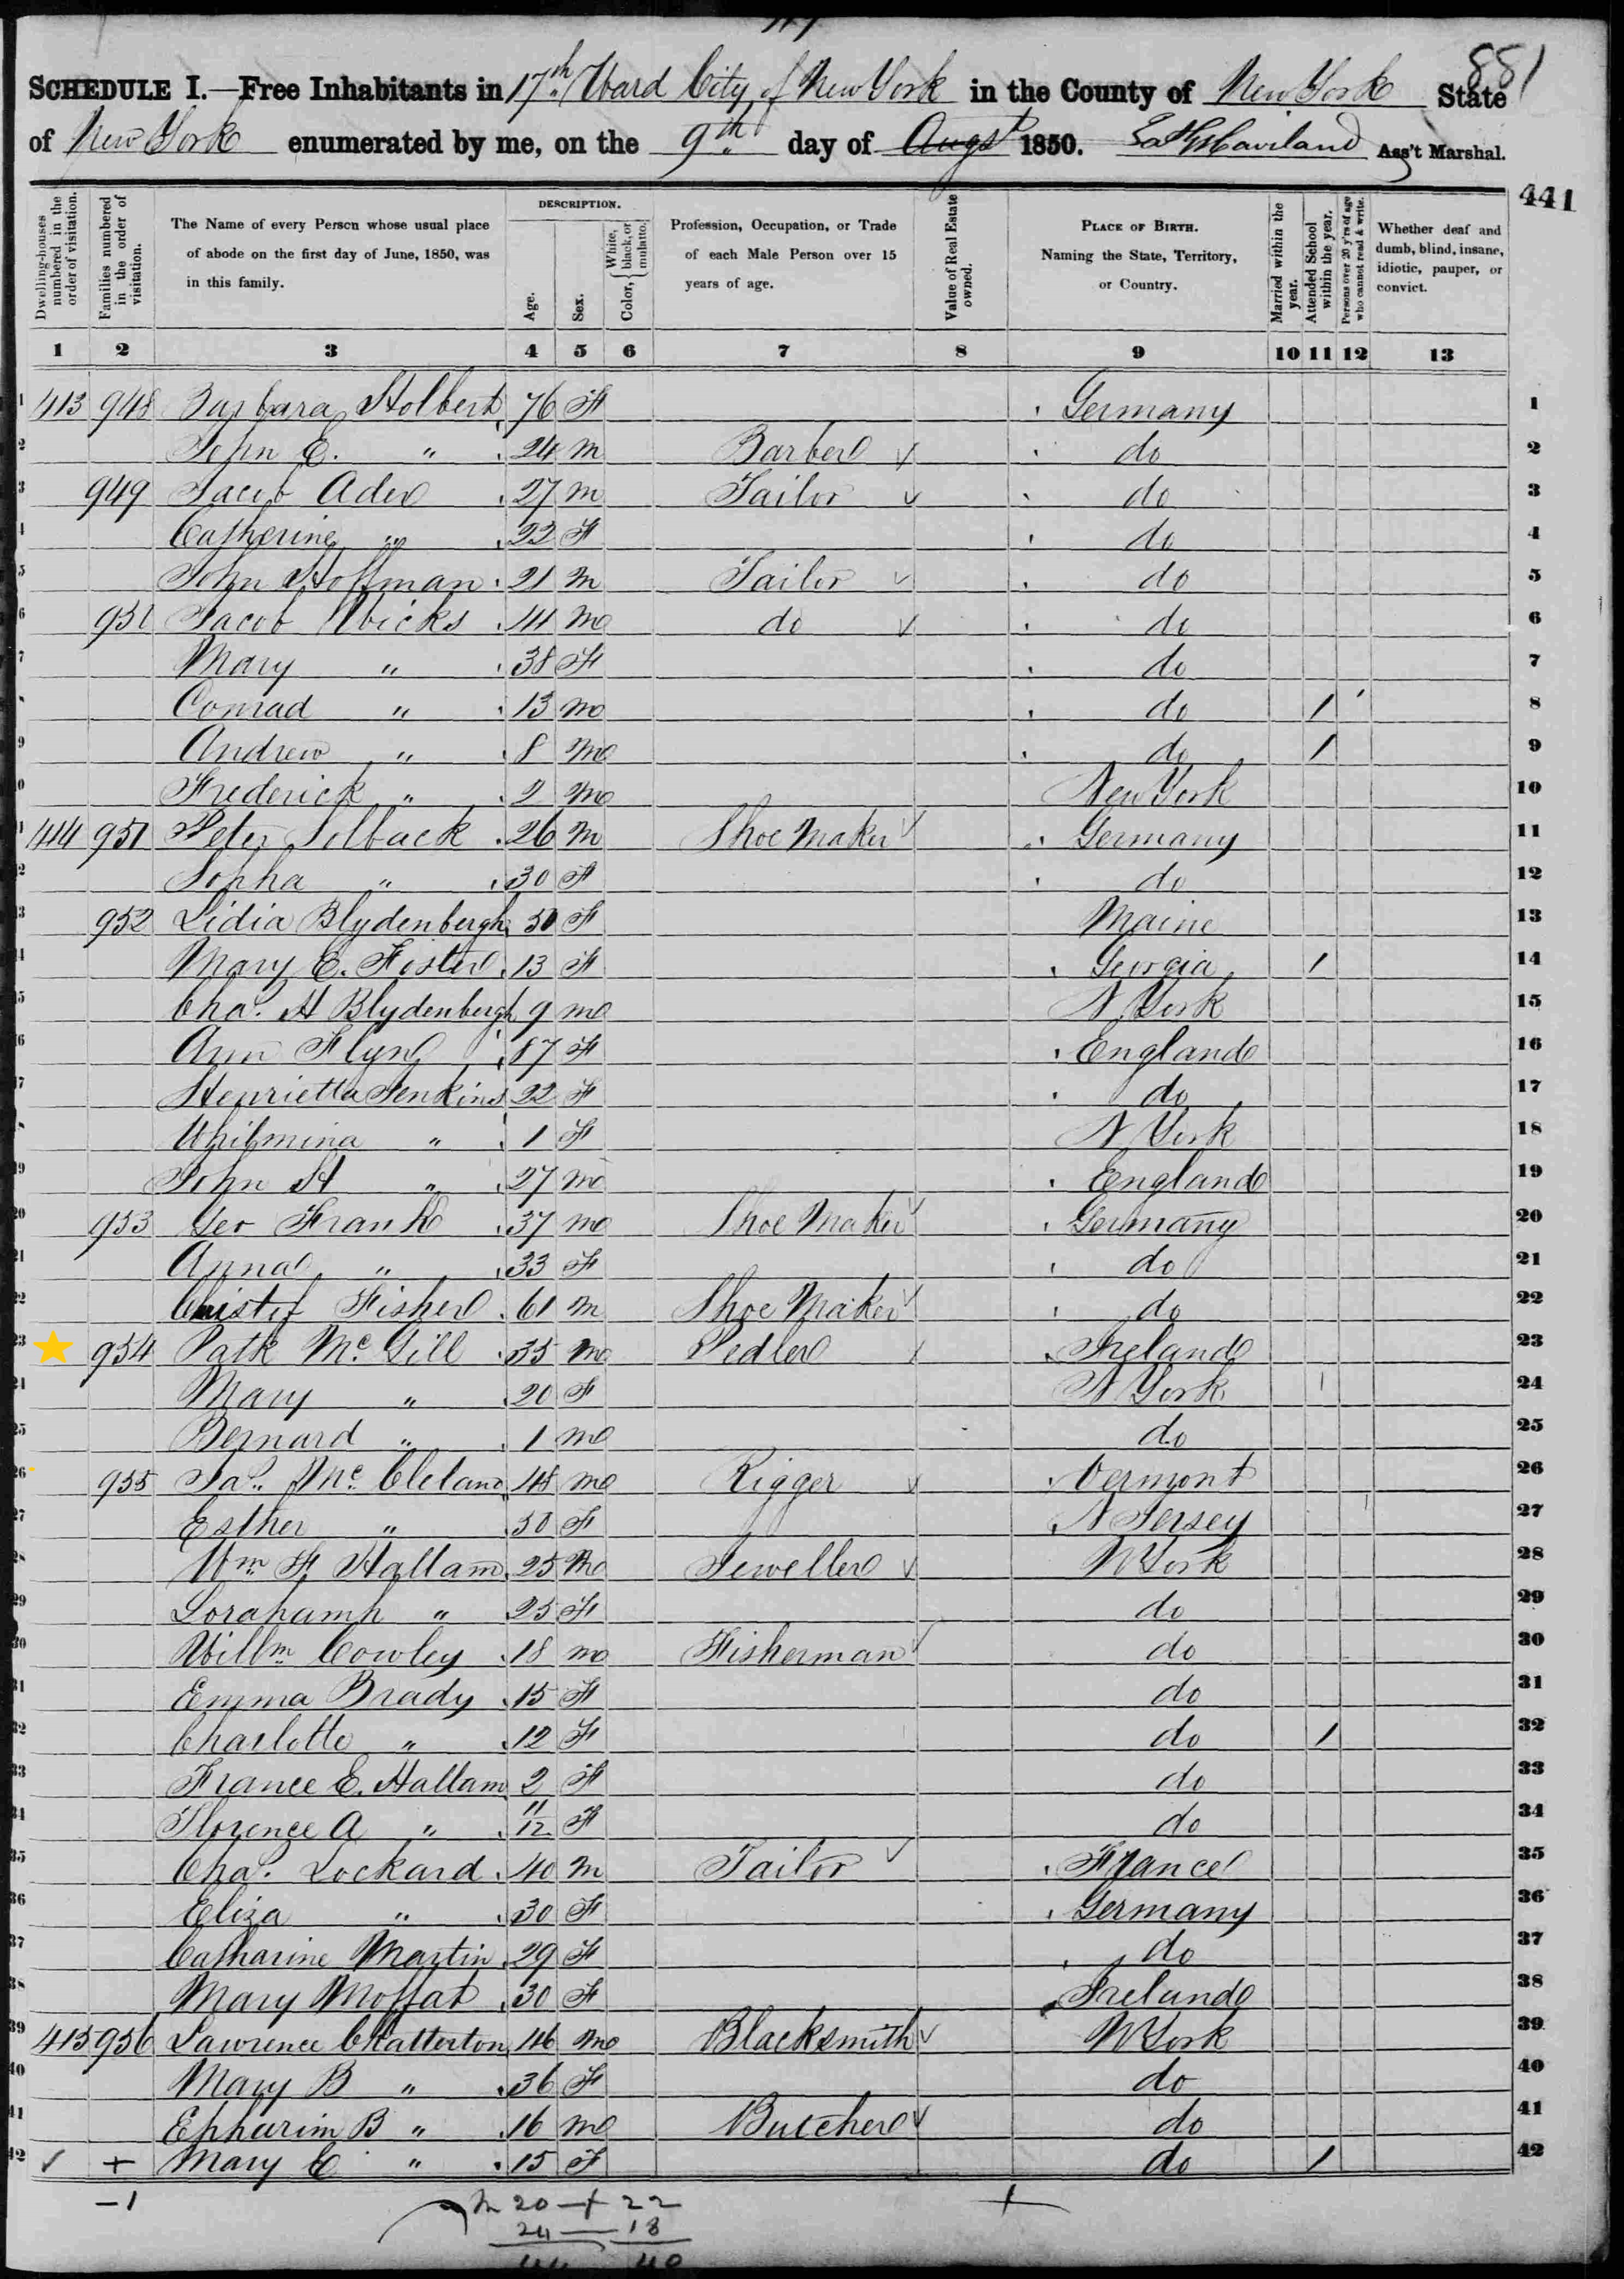 881
SCHEDULE I.—Free Inhabitants in 17th Ward City of New York in the County of New York State
of New York enumerated by me, on the 9th day of Augst 1850. Haviland Ass't Marshal.
441
Dwelling-houses numbered in the order of visitation.
Families numbered in the order of visitation.
The Name of every Person whose usual place of abode on the first day of June, 1850, was in this family.
DESCRIPTION.
Age.
Sex.
Color, { White, black, or mulatto.
Profession, Occupation, or Trade of each Male Person over 15 years of age.
Value of Real Estate owned.
PLACE OF BIRTH. Naming the State, Territory, or Country.
Married within the year.
Attended School within the year.
Persons over 20 y'rs of age who cannot read & write.
Whether deaf and dumb, blind, insane, idiotic, pauper, or convict.
1 2 3 4 5 6 7 8 9 10 11 12 13
1 413 948 Barbara Holbert 76 F Germany 1
2 John E. " 24 m Barber do 2
3 949 Jacob Ader 27 m Tailor do 3
4 Catherine " 22 F do 4
5 John Hoffman 21 m Tailor do 5
6 950 Jacob Wicks 41 m do do 6
7 Mary " 38 F do 7
Conrad " 13 m do / 8
9 Andrew " 8 m do / 9
Frederick " 2 m New York 10
414 951 Peter Solback 26 m Shoe Maker Germany 11
Sopha " 30 F do 12
952 Lidia Blydenbergh 50 F Maine 13
Mary E. Foster 13 F Georgia / 14
Cha.s H Blydenbergh 9 m N York 15
Ann Flyng 87 F England 16
Henrietta Jenkins 22 F do 17
Whilmina " 1 F N York 18
John H " 27 m England 19
20 953 Geo Frank 37 m Shoe Maker Germany 20
21 Anna " 33 F do 21
22 Christof Fisher 61 m Shoe Maker do 22
23 954 Patk Mc Gill 35 m Pedler Ireland 23
Mary " 20 F N York / 24
25 Bernard " 1 m do 25
26 955 Ja.s Mc Cleland 48 m Rigger Vermont 26
27 Esther " 50 F N Jersey 27
28 Wm F Hallam 25 m Jeweller N York 28
29 Lorahamh " 25 F do 29
30 Willm Cowley 18 m Fisherman do 30
31 Emma Brady 15 F do 31
32 Charlotte " 12 F do / 32
33 France E. Hallam 2 F do 33
Florence A " 11/12 F do 34
35 Cha.s Lockard 40 m Tailor France 35
36 Eliza " 30 F Germany 36
37 Catharine Martin 29 F do 37
38 Mary Moffat 30 F Ireland 38
39 415 956 Lawrence Chatterton 46 m Blacksmith N York 39
40 Mary B " 36 F do 40
41 Epharim B " 16 m Butcher do 41
42 ✓ + Mary E " 15 F do / 42
-1 m 20 + 22
24 — 18
44 40